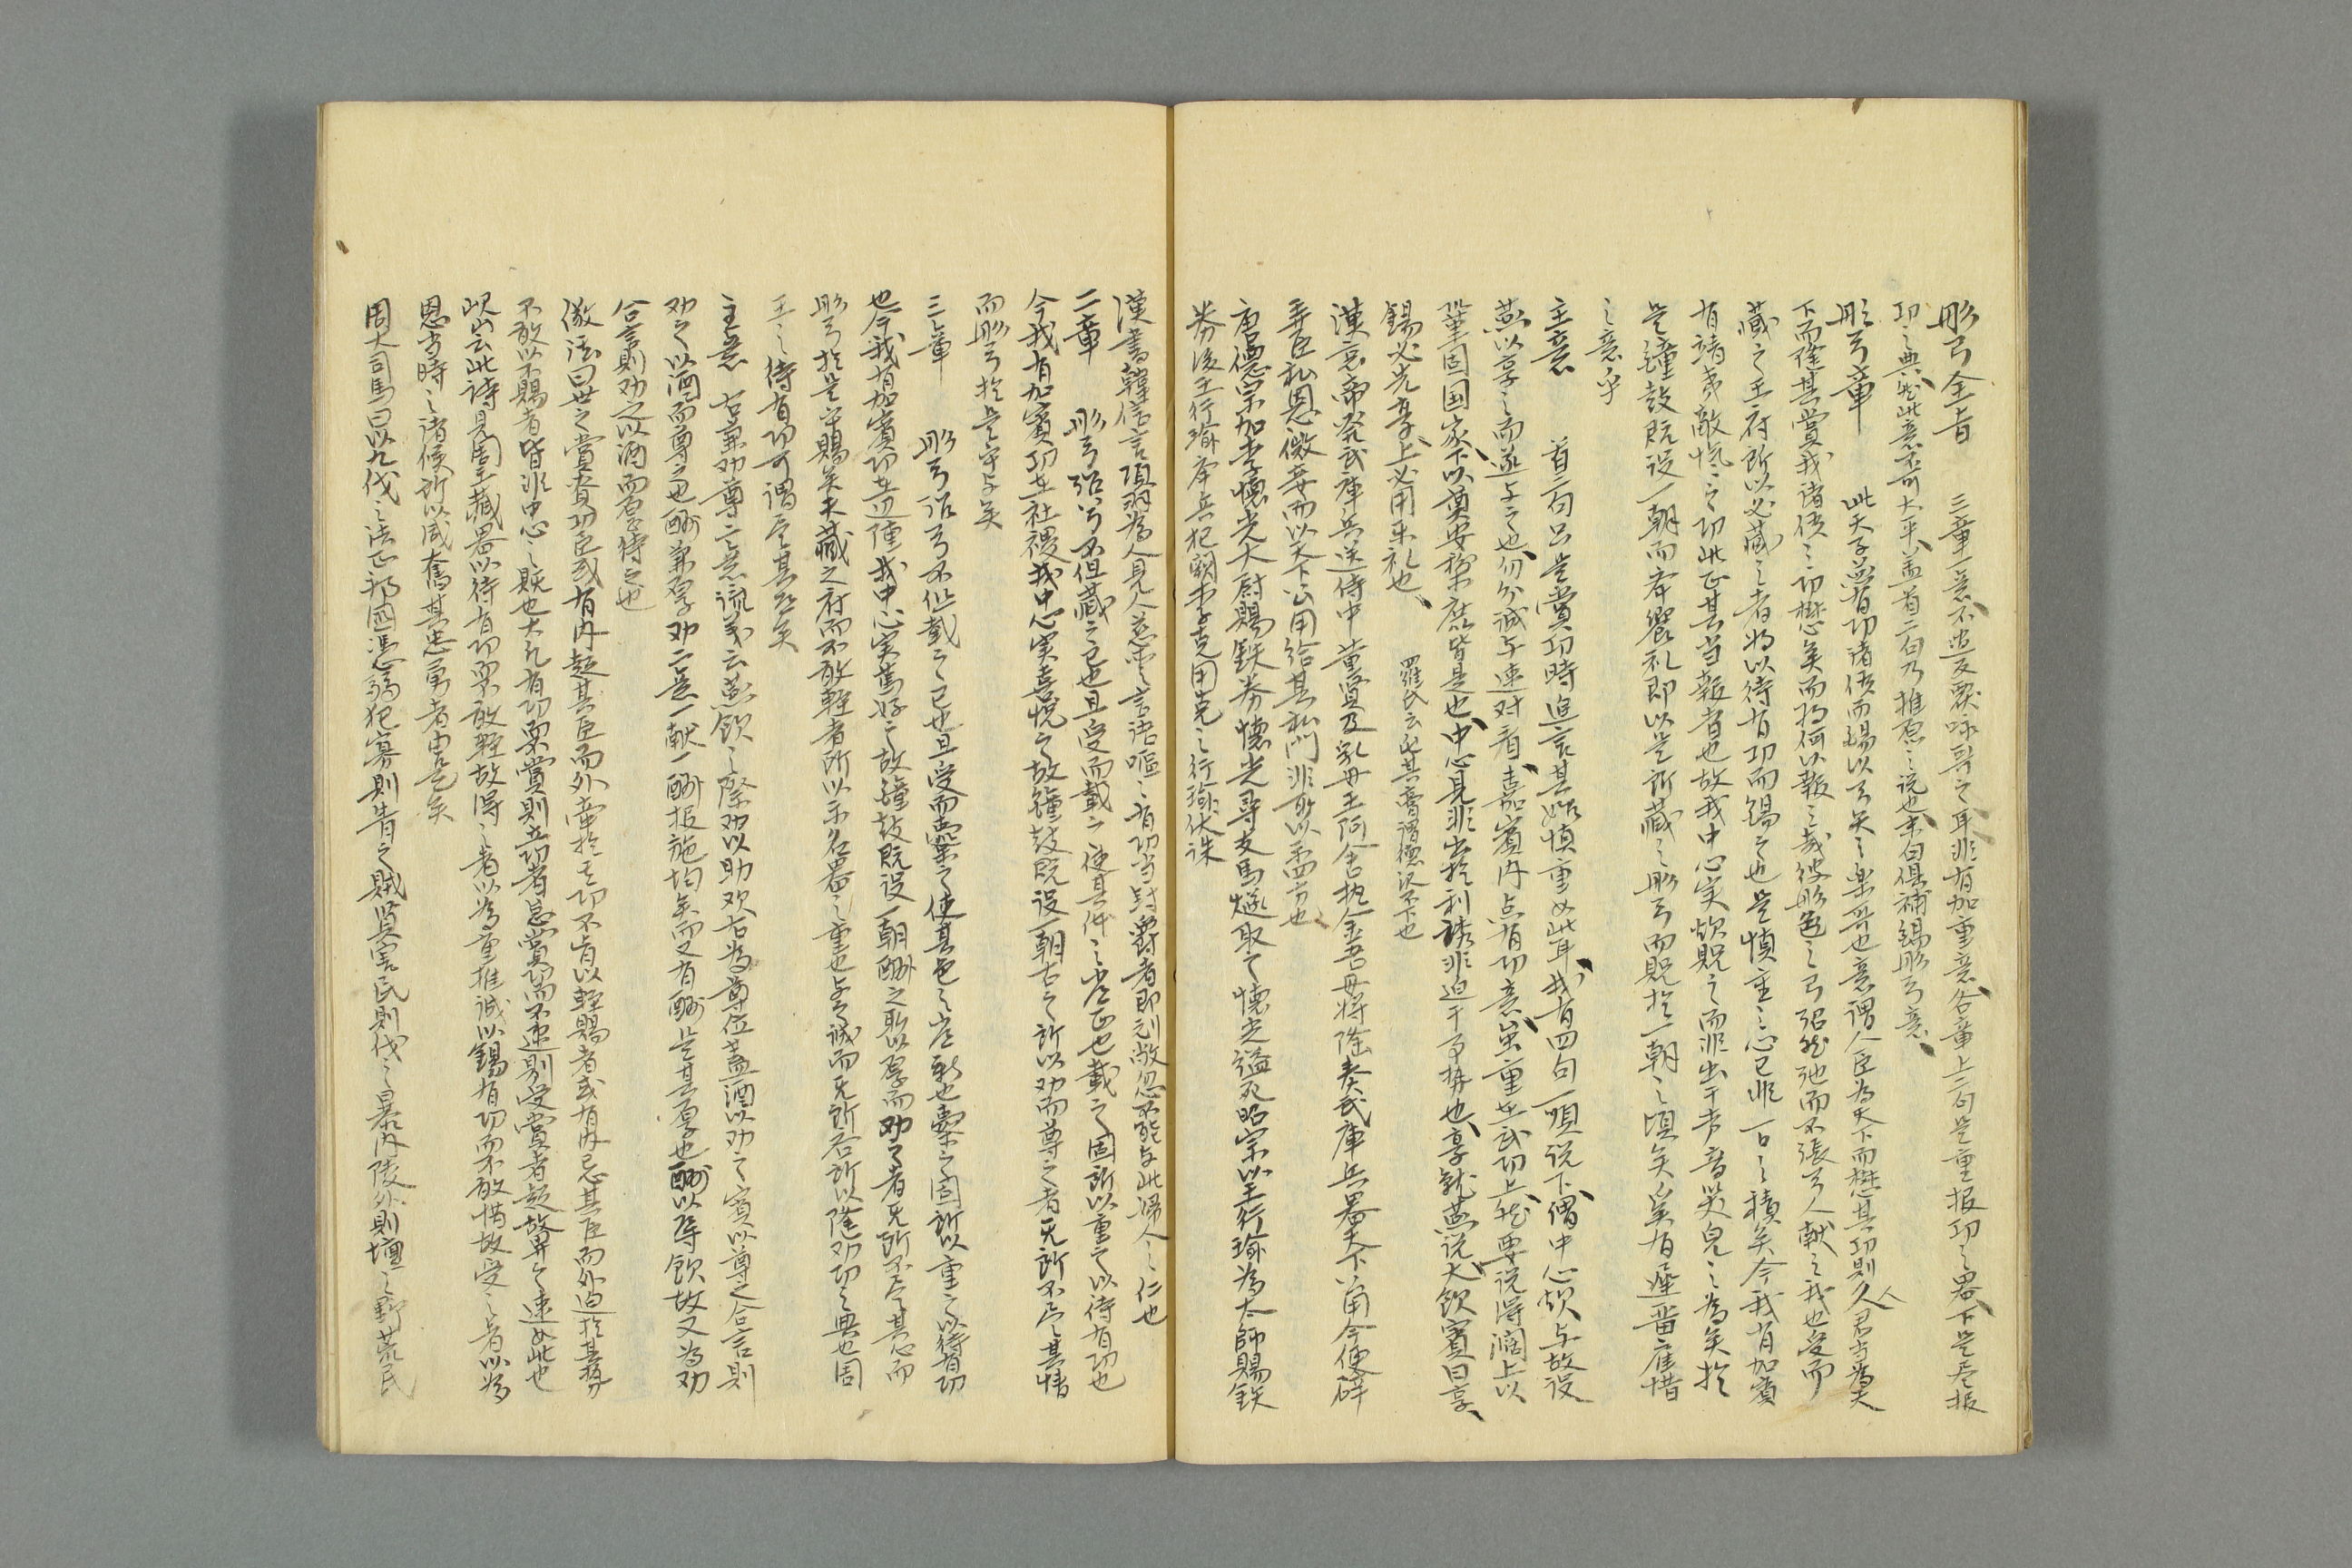 彤弓全旨　三章一意不過反覆咏歌之耳非有加重意各章上二句是重报功之器下是尽报
功之典然此意不可太平盖首二句乃推原之说也末句俱補錫彤弓意
彤弓章　此天子燕有功諸侯而錫以弓矢之樂哥也意謂人臣為天下而懋其功則人君当為天
下而隆其賞我諸侯之功懋矣而将何以報之哉彼彤色之弓弨然弛而不張弓人献之我也受而
藏之王府所以必藏之者将以待有功而錫之也是慎重之心已非一日之積矣今我有加賓
有靖夷敵愾之功此正其当報者也故我中心实欲貺之而非出于声音笑皃之為矣於
是鐘鼓既设一朝而奔饗礼即以是所藏之彤弓而貺於一朝之頃矣奚有遲畱雇惜
之意乎
主意　首二句只是賞功時追言其始慎重如此耳我有四句一順说下謂中心欲与故设
燕以享之而遂与之也勿分诚与速对看嘉賓内点有功意虽重在武功上然要说得濶上以
鞏固国家下以奠安黎庶皆是也中心見非出於利誘非迫于事势也享就燕说大飲賓曰享
錫必先享上必用来礼也　羅氏云屯其膏謂德沢不下也
漢哀帝発武庫兵送侍中董賢及乳母王阿舍执金吾毋将隆奏武庫兵器天下公用今便辟
弄臣私恩微妾而以天下公用給其私門非所以示四方也
唐德宗加李懷光大尉賜鉄券懷光辱支馬燧取之懷光縊死昭宗以王行瑜為太師賜鉄
券後王行瑜率兵犯闕李克用克之行瑜伏誅
漢書韓信言項羽為人見人慈愛言語嘔嘔有功当封爵者即刓敝忍不能与此婦人之仁也
二章　彤弓弨兮不但藏之已也且受而載之使其体之常正也載之固所以重之以待有功也
今我有加賓功在社稷我中心实喜悅之故鐘鼓既设一朝右之所以劝而尊之者无所不尽其情
而彤弓於是乎与矣
三章　彤弓弨兮不但載之已也且受而櫜之使其色之常新也櫜之固所以重之以待有功
也今我有加賓功在边陲我中心实篤好之故鐘鼓既设一朝酬之所以厚而劝之者无所不尽其心而
彤弓於是乎賜矣夫藏之府而不敢輕者所以示名器之重也与之诚而无所吝所以隆功功之典也周
王之待有功可謂尽其心矣
主意　右兼劝尊二意疏义云燕飲之際劝以助欢右為尊位盖酒以劝之賓以尊之合言則
劝之以酒而尊之也酬兼厚劝二意一献一酬报施均矣而又有酬是其厚也酬以导飲故又為劝
合言則劝之以酒而厚待之也
傚活曰世之賞賚功臣或有内疑其臣而外牽於其功不肯以輕賜者或有内忌其臣而外迫於其势
不敢以不賜者皆非中心之貺也夫礼有功不賞則立功者怠賞功而不速則受賞者疑故畀之速如此也
峴山云此詩見周王藏器以待有功不敢輕故得之者以為重推诚以錫有功而不敢惜故受之者以為
恩当時之諸侯所以感奮其忠勇者由是矣
周大司馬曰以九伐之法正邦國馮弱犯寡則眚之賊贤害民則伐之暴内陵外則壇之野荒民